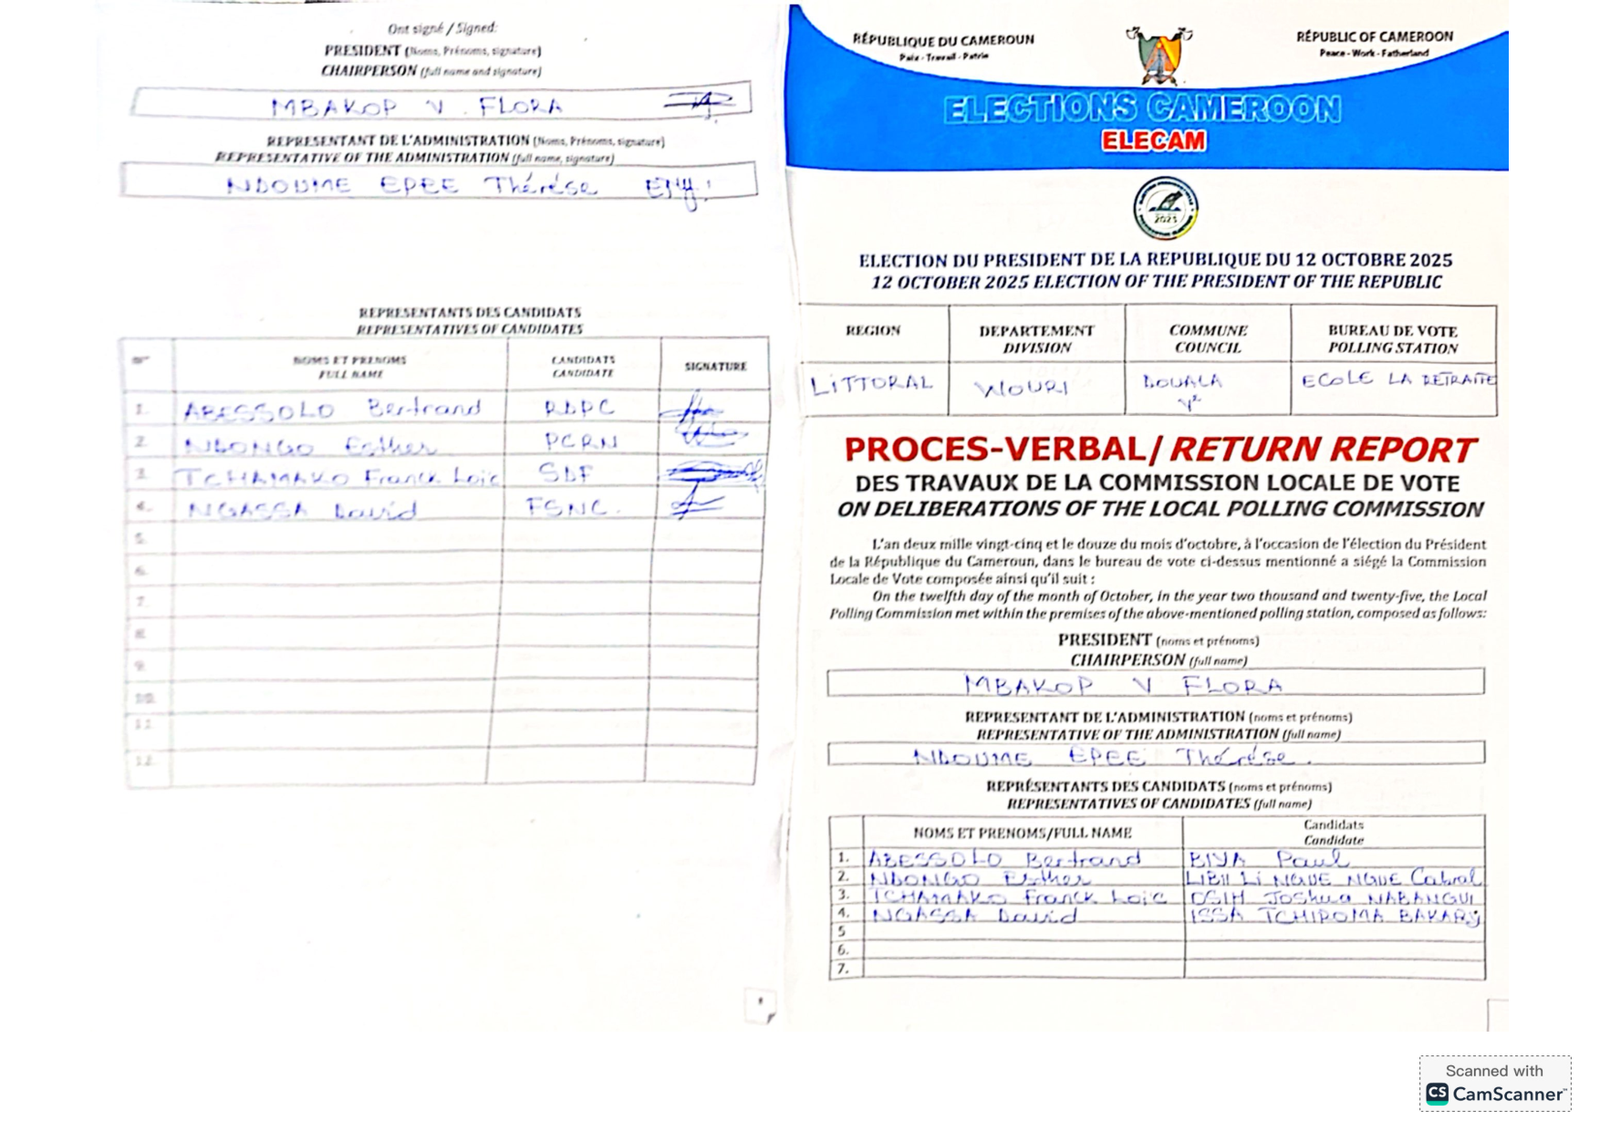 Ont signé / Signed:
PRESIDENT (Noms, Prénoms, signature)
CHAIRPERSON (full name and signature)
MBAKOP V. FLORA
REPRESENTANT DE L'ADMINISTRATION (Noms, Prénoms, signature)
REPRESENTATIVE OF THE ADMINISTRATION (full name, signature)
NDOUME EPEE Thérèse
REPRESENTANTS DES CANDIDATS
REPRESENTATIVES OF CANDIDATES
N° NOMS ET PRENOMS CANDIDATS SIGNATURE
FULL NAME CANDIDATE
1. ABESSOLO Bertrand RDPC
2. NDONGO Esther PCRN
3. TCHAMAKO Franck Loic SDF
4. NGASSA David FSNC.
5.
6.
7.
8.
9.
10.
11.
12.
RÉPUBLIQUE DU CAMEROUN
Paix - Travail - Patrie
RÉPUBLIC OF CAMEROON
Peace - Work - Fatherland
ELECTIONS CAMEROON
ELECAM
2025
ELECTION DU PRESIDENT DE LA REPUBLIQUE DU 12 OCTOBRE 2025
12 OCTOBER 2025 ELECTION OF THE PRESIDENT OF THE REPUBLIC
REGION DEPARTEMENT COMMUNE BUREAU DE VOTE
DIVISION COUNCIL POLLING STATION
LITTORAL WOURI DOUALA ECOLE LA RETRAITE
PROCES-VERBAL/ RETURN REPORT
DES TRAVAUX DE LA COMMISSION LOCALE DE VOTE
ON DELIBERATIONS OF THE LOCAL POLLING COMMISSION
L'an deux mille vingt-cinq et le douze du mois d'octobre, à l'occasion de l'élection du Président
de la République du Cameroun, dans le bureau de vote ci-dessus mentionné a siégé la Commission
Locale de Vote composée ainsi qu'il suit :
On the twelfth day of the month of October, in the year two thousand and twenty-five, the Local
Polling Commission met within the premises of the above-mentioned polling station, composed as follows:
PRESIDENT (noms et prénoms)
CHAIRPERSON (full name)
MBAKOP V FLORA
REPRESENTANT DE L'ADMINISTRATION (noms et prénoms)
REPRESENTATIVE OF THE ADMINISTRATION (full name)
NDOUME EPEE Thérèse.
REPRÉSENTANTS DES CANDIDATS (noms et prénoms)
REPRESENTATIVES OF CANDIDATES (full name)
NOMS ET PRENOMS/FULL NAME Candidats
Candidate
1. ABESSOLO Bertrand BIYA Paul
2. NDONGO Esther LIBII Li NGUE NGUE Cabral
3. TCHAMAKO Franck Loic OSIH Joshua NABANGUI
4. NGASSA David ISSA TCHIROMA BAKARY
5
6.
7.
Scanned with
CS CamScanner